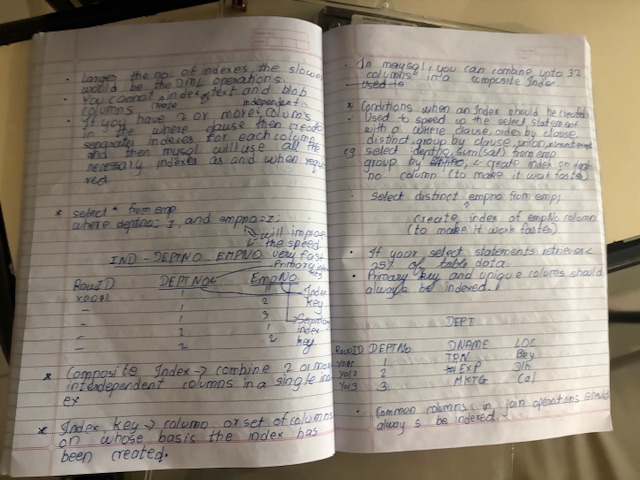 • Larger the no. of indexes, the slower
would be the DML operations.
• You cannot create index of text and blob
columns
• If you have 2 or more independent columns
in the where clause then create
separate indexes for each column
and then mysql will use all the
necessary indexes as and when requi
red
* select * from emp
where deptno = 1, and empno = 1;
will improve
the speed
IND - DEPTNO_EMPNO very fast
Primary
RowID DEPTNO EmpNo
X001 1 1 Index
– 1 2 key
– 1 3
– 2 1 index
– 2 2 key
* Composite Index → combine 2 or more
interdependent columns in a single
ex
* Index key → column or set of columns
on whose basis the index has
been created.
• In mysql, you can combine upto 32
columns into a composite Index
used to
* Conditions when an Index should be created
• Used to speed up the select statement
with a where clause, order by clause,
distinct, group by clause, union,
eg select deptno, sum(sal) from emp
group by deptno; <- create index on
no column (to make it work faster)
select distinct empno from emp;
create index of empNo column
(to make it work faster)
• If your select statements retrieve <
25% of table data.
• Primary key and unique colums should
always be indexed.
DEPT
RowID DEPTNo DNAME LOC
Yoo1 1 TRN Boy
Yoo2 2 EXP Dlh
Yoo3 3 MKTG Cal
• Common columns in join operations should
always be indexed.